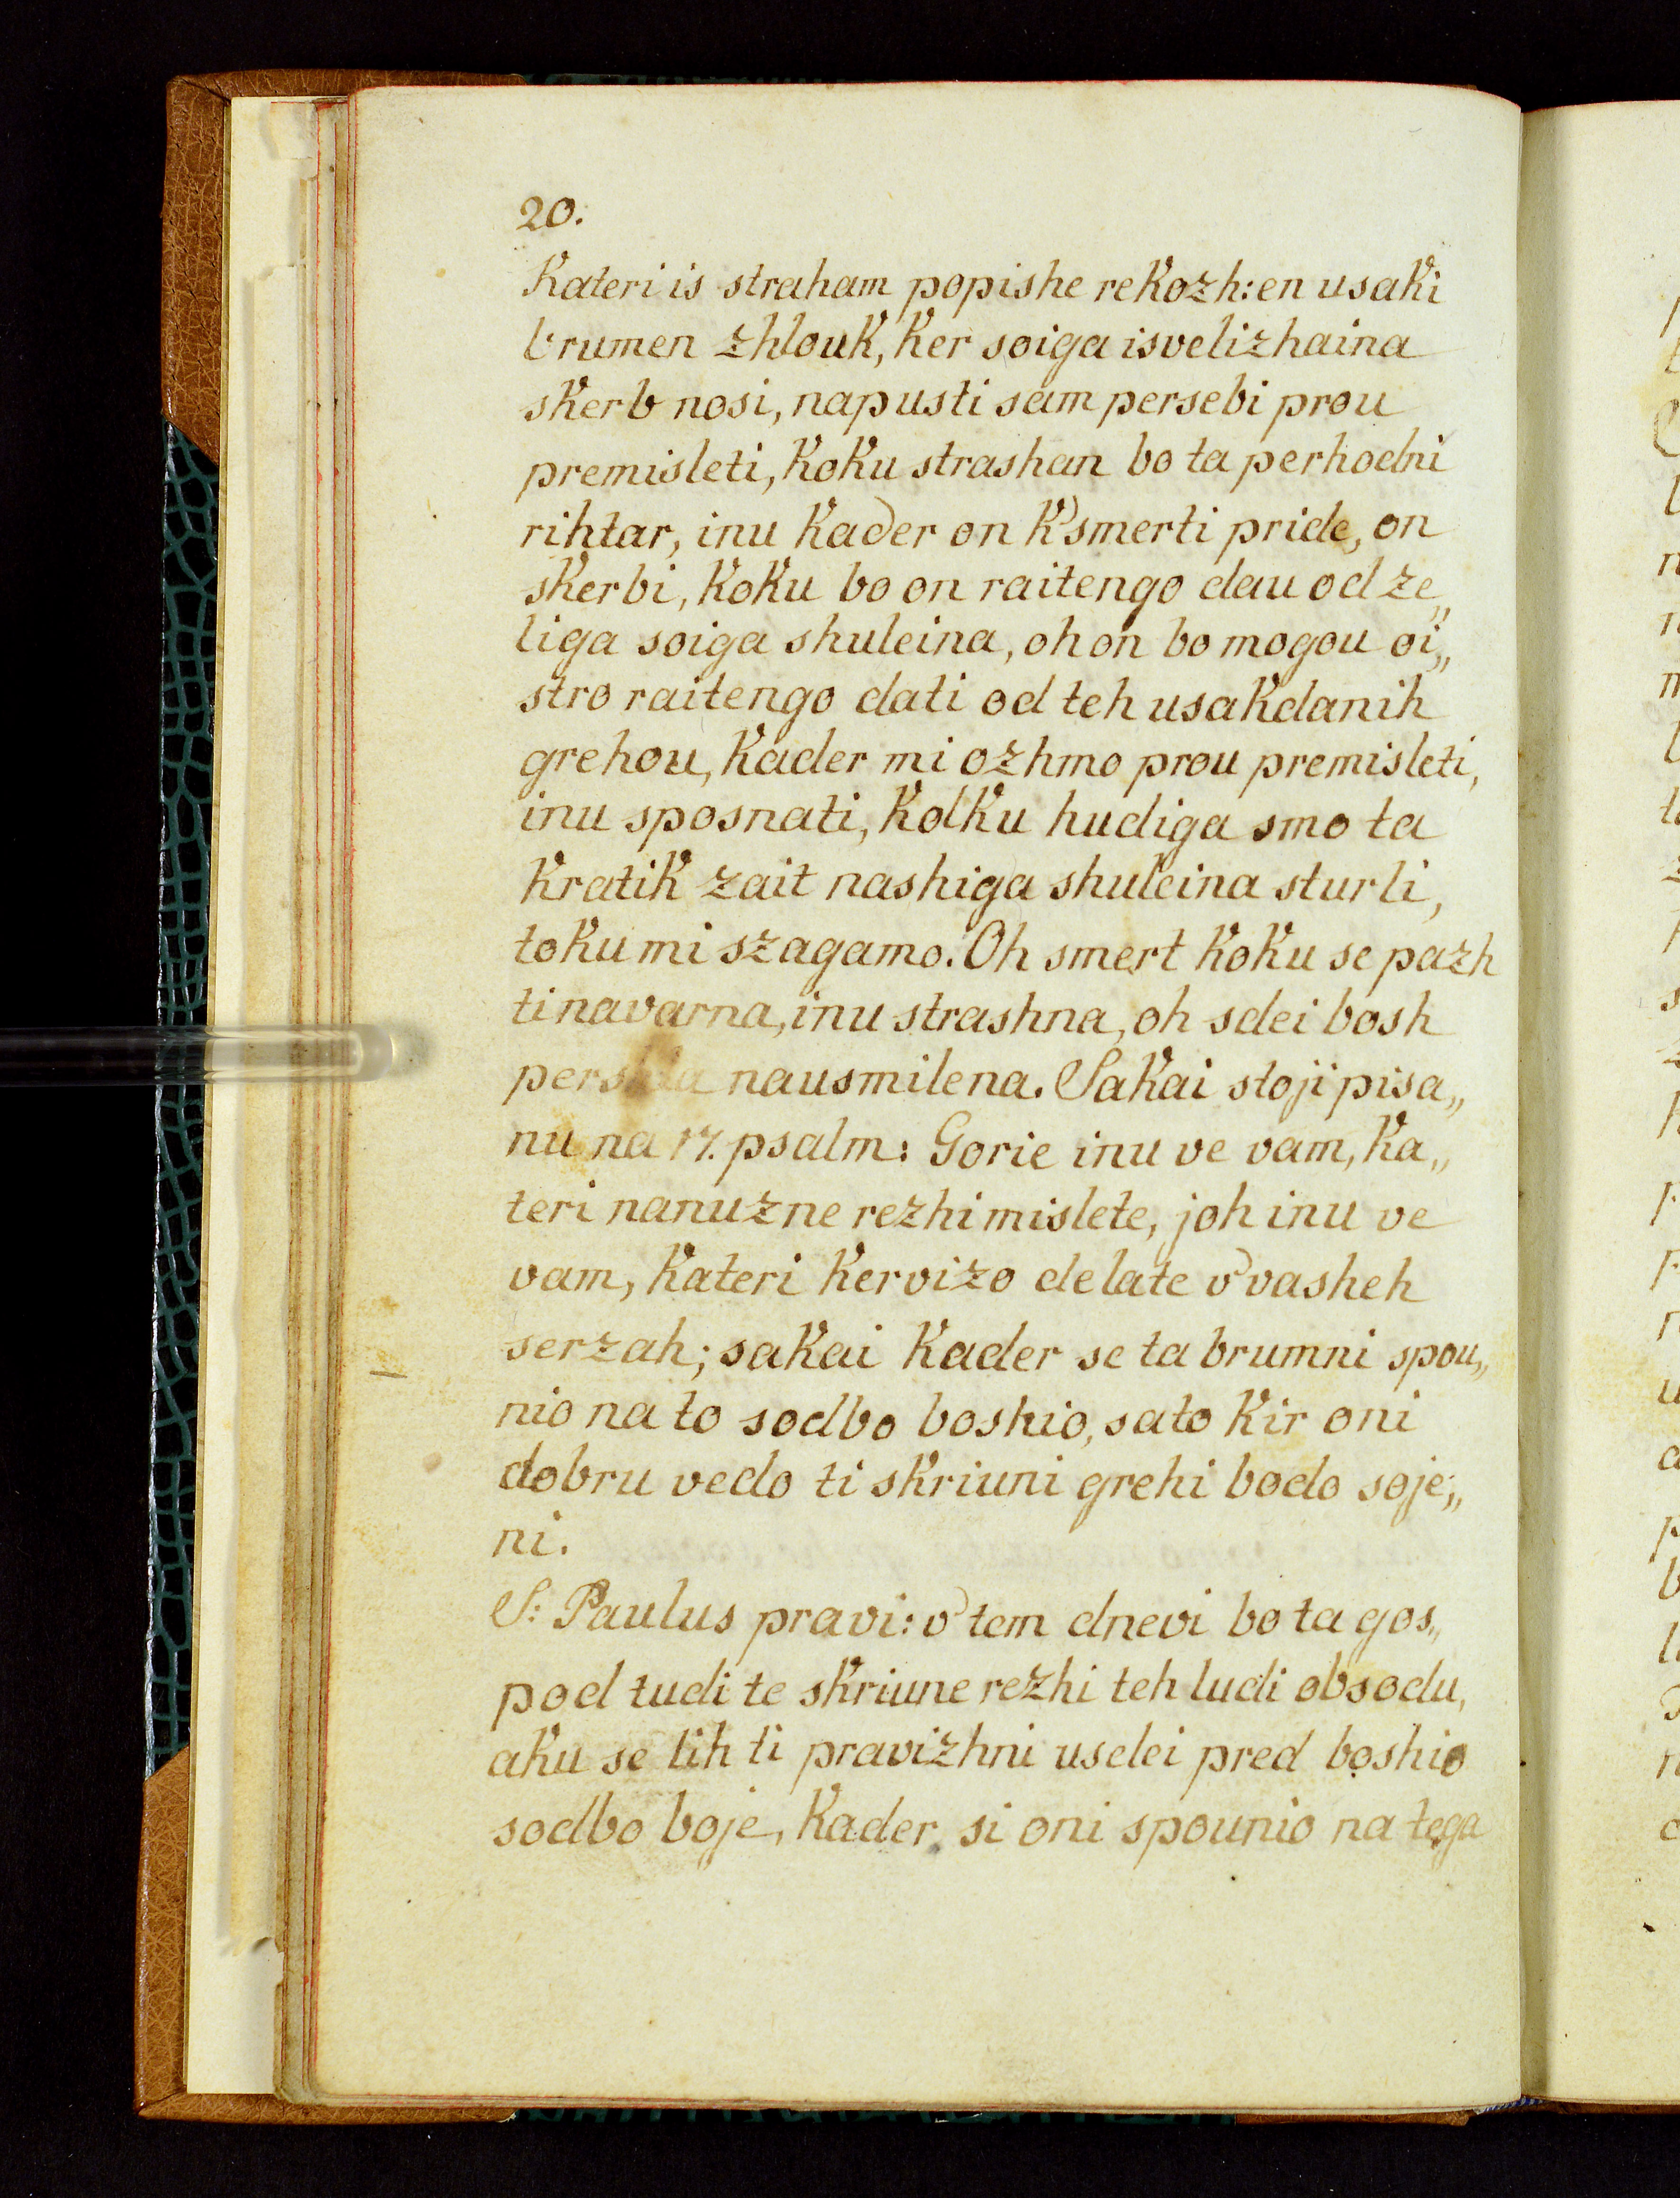 20.
Kateri is straham popishe rekozh: en usaki
brumen zhlouk, ker soiga isvelizhaina
skerb nosi, napusti sam persebi prou
premisleti, koku strashan bo ta perhodni
rihtar, inu kader on k'smerti pride, on
skerbi, koku bo on raitengo dau od ze„
liga soiga shuleina, oh on bo mogou oi„
stro raitengo dati od teh usakdanih
grehou, kader mi ozhmo prou premisleti,
inu sposnati, kolku hudiga smo ta
kratik zait nashiga shuleina sturli,
toku mi szagamo. Oh smert koku se pazh
ti navarna, inu strashna, oh sdei bosh
nausmilena. Sakai stoji pisa„
nu na 17. psalm: Gorie inu ve vam, ka„
teri nanuzne rezhi mislete, joh inu ve
vam, kateri kervizo delate v'vasheh
serzah; sakai kader se ta brumni spou„
nio na to sodbo boshio, sato kir oni
dobru vedo ti skriuni grehi bodo soje„
ni.
S: Paulus pravi: v'tem dnevi bo ta gos„
pod tudi te skriune rezhi teh ludi obsodu,
aku se lih ti pravizhni uselei pred boshio
sodbo boje, kader si oni spounio na tega